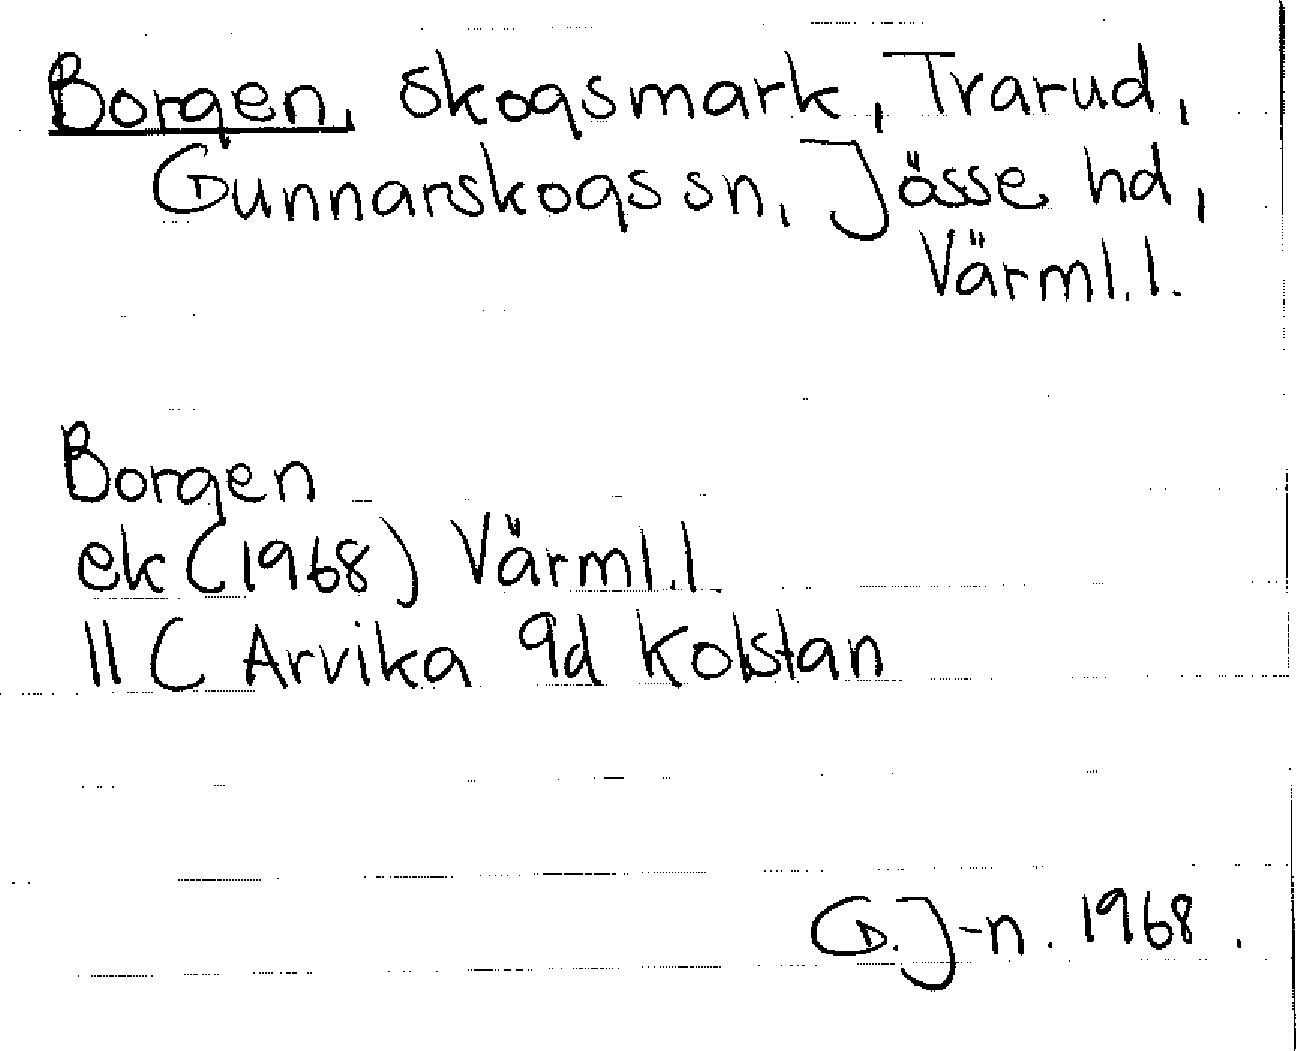 Borgen, skogsmark, Trarud,
Gunnarskogs sn, Jösse hd,
Värml.l.
Borgen
ek (1968) Värml.l.
11 C Arvika 9d Kolstan
G.J-n. 1968.